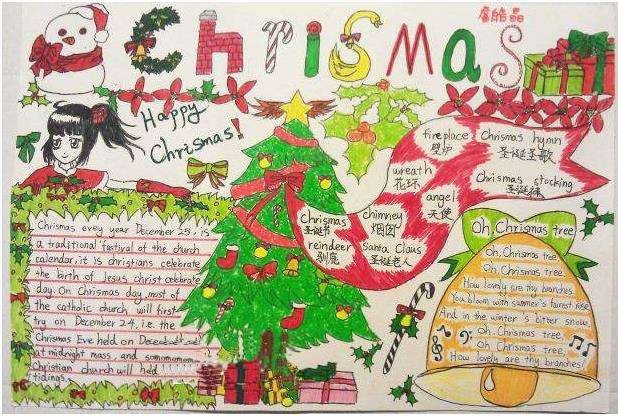 ChriSMaS
Happy
Chrismas!
fireplace
壁炉
Chrismas hymn
圣诞圣歌
wreath
花环
Chrismas stocking
圣诞袜
angel
天使
Chrismas
圣诞节
chimney
烟囱
reindeer
驯鹿
Santa Claus
圣诞老人
Chrismas evey year December 25, is
a traditional fastival of the church
calendar, it is christians celebrate
the birth of Jesus christ celebrate
day. On Chrismas day, most of
the catholic church will first
try on December 24, i.e. the
Chrismas Eve held on
at midnight mass, and
Christian church will held
tidings.
Oh, Chrismas tree
Oh, Chrismas tree
Oh Chrismas tree
How lovely are thy branches
You bloom with summer's fairest rose
And in the winter's bitter snow,
Oh, Chrismas tree,
Oh Chrismas tree,
How lovely are thy branches!